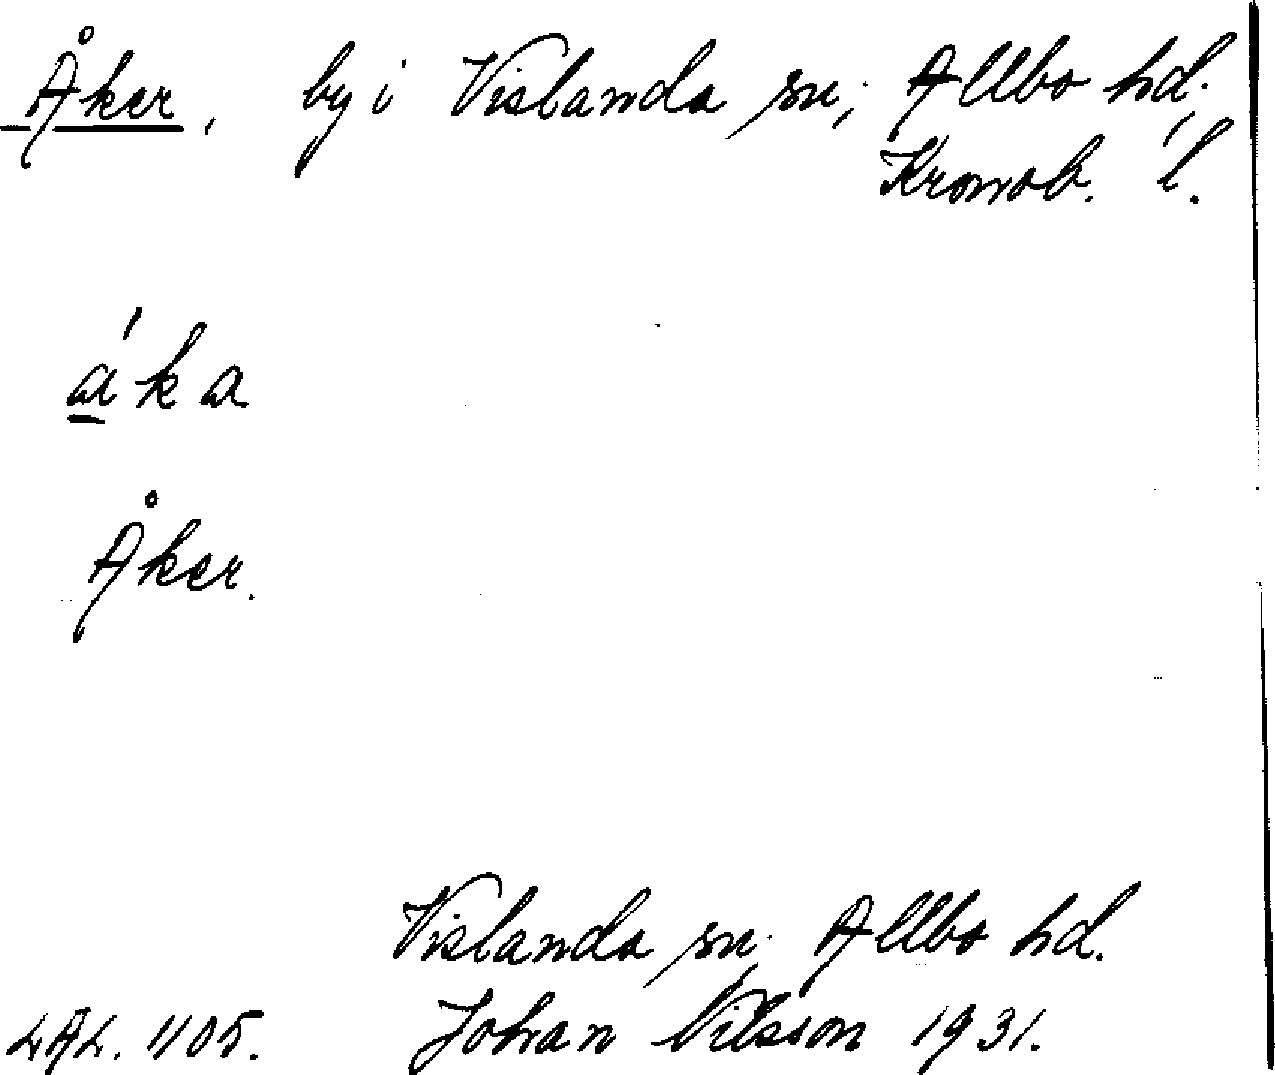 Åker, by i Vislanda sn, Allbo hd,
Kronob. l.
áka
Åker.
Vislanda sn, Allbo hd.
LAL. 1105. Johan Nilsson 1931.